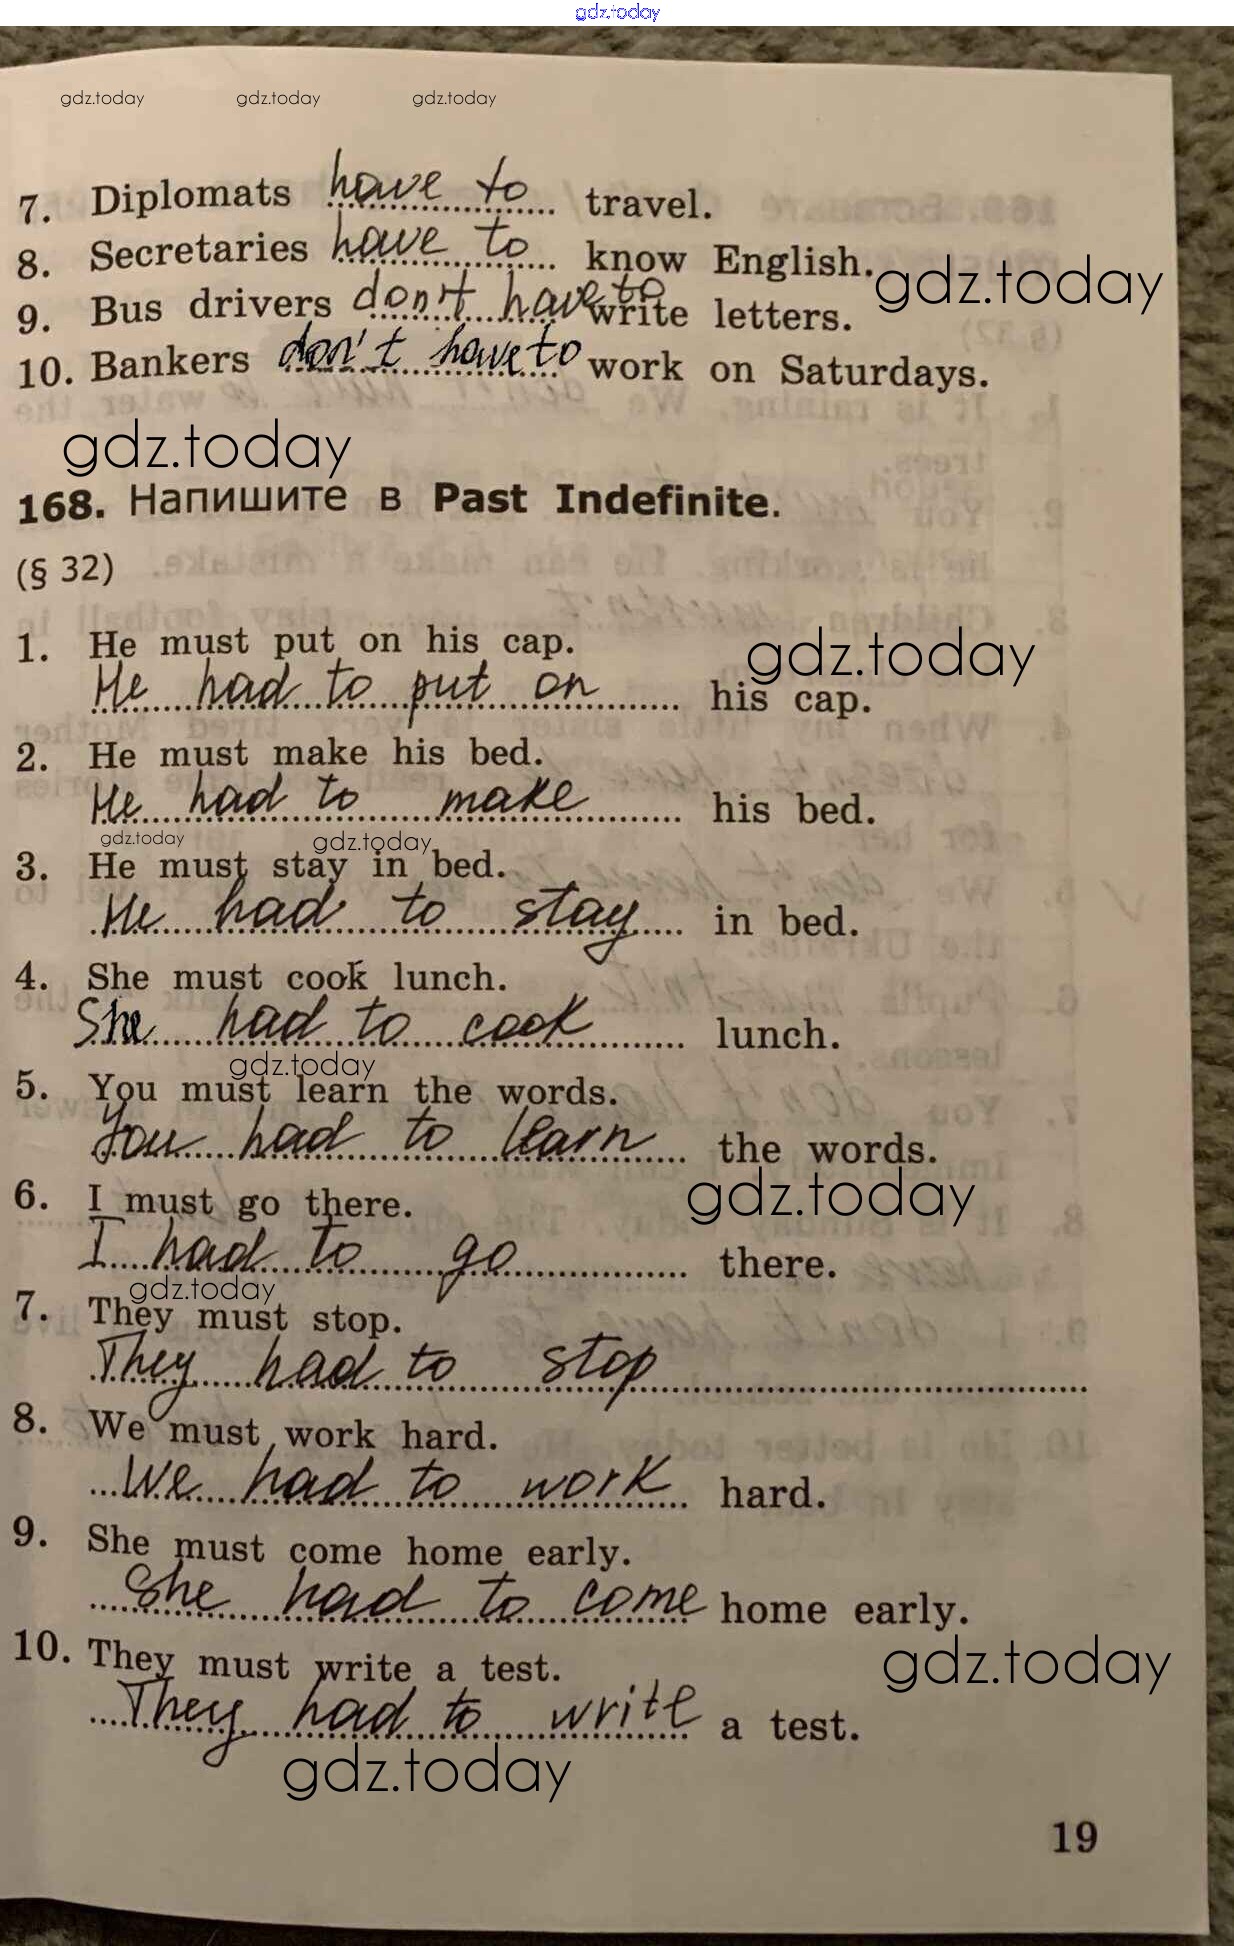 gdz.today
gdz.today gdz.today gdz.today
7. Diplomats have to travel.
8. Secretaries have to know English.
gdz.today
9. Bus drivers don't have to write letters.
10. Bankers don't have to work on Saturdays.
gdz.today
168. Напишите в Past Indefinite.
(§ 32)
1. He must put on his cap.
gdz.today
He had to put on his cap.
2. He must make his bed.
He had to make his bed.
gdz.today gdz.today
3. He must stay in bed.
He had to stay in bed.
4. She must cook lunch.
She had to cook lunch.
gdz.today
5. You must learn the words.
You had to learn the words.
gdz.today
6. I must go there.
I had to go there.
gdz.today
7. They must stop.
They had to stop
8. We must work hard.
We had to work hard.
9. She must come home early.
She had to come home early.
10. They must write a test.
gdz.today
They had to write a test.
gdz.today
19